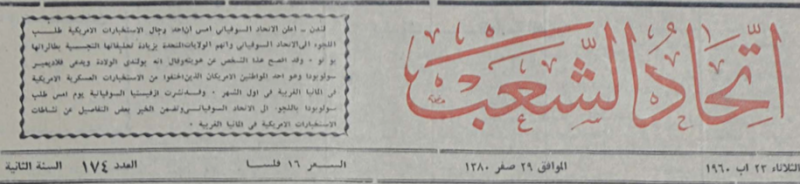 اتحاد الشعب
لندن ـ اعلن الاتحاد السوفياتي امس ان احد رجال الاستخبارات الامريكية طلب
اللجوء الى الاتحاد السوفياتي واتهم الولايات المتحدة بزيادة تحليقاتها التجسسية بطائراتها
يو تو ٠ وقد افصح هذا الشخص عن هويته وقال انه بولندي الولادة ويدعى فلاديمير
سلوبودا وهو احد المواطنين الامريكان الذين اختفوا من الاستخبارات العسكرية الامريكية
في المانيا الغربية في اول الشهر ٠ وقد نشرت ازفيستيا السوفياتية يوم امس طلب
سلوبودا باللجوء الى الاتحاد السوفياتي وتضمن الخبر بعض التفاصيل عن نشاطات
الاستخبارات الامريكية في المانيا الغربية ٠
الثلاثاء ٢٣ اب ١٩٦٠
الموافق ٢٩ صفر ١٣٨٠
السعر ١٦ فلسا
العدد ١٧٤
السنة الثانية